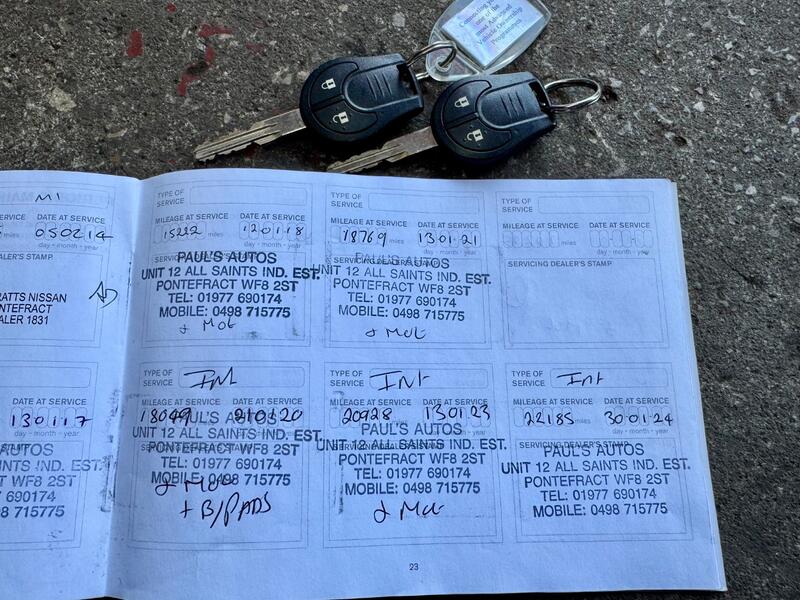 Connecting you
one of the
most Advanced
Vehicle Ownership
Programmes
MI
SERVICE DATE AT SERVICE
miles 050214
day • month • year
DEALER'S STAMP
RATTS NISSAN
NTEFRACT
ALER 1831
TYPE OF
SERVICE
MILEAGE AT SERVICE DATE AT SERVICE
15222 miles 120118
day • month • year
SERVICING DEALER'S STAMP
PAUL'S AUTOS
UNIT 12 ALL SAINTS IND. EST.
PONTEFRACT WF8 2ST
TEL: 01977 690174
MOBILE: 0498 715775
+ MOT
TYPE OF
SERVICE
MILEAGE AT SERVICE DATE AT SERVICE
18769 miles 130121
day • month • year
SERVICING DEALER'S STAMP
PAUL'S AUTOS
UNIT 12 ALL SAINTS IND. EST.
PONTEFRACT WF8 2ST
TEL: 01977 690174
MOBILE: 0498 715775
+ MOT
TYPE OF
SERVICE
MILEAGE AT SERVICE DATE AT SERVICE
miles
day • month • year
SERVICING DEALER'S STAMP
SERVICE DATE AT SERVICE
miles 130117
day • month • year
STAMP
AUTOS
INTS IND. EST.
WF8 2ST
690174
715775
TYPE OF
SERVICE Int
MILEAGE AT SERVICE DATE AT SERVICE
18049 210120
day • month • year
PAUL'S AUTOS
UNIT 12 ALL SAINTS IND. EST.
PONTEFRACT WF8 2ST
TEL: 01977 690174
MOBILE: 0498 715775
+ MOT
+ B/PADS
TYPE OF
SERVICE Int
MILEAGE AT SERVICE DATE AT SERVICE
20928 130123
day • month • year
PAUL'S AUTOS
UNIT 12 ALL SAINTS IND. EST.
PONTEFRACT WF8 2ST
TEL: 01977 690174
MOBILE: 0498 715775
+ MOT
TYPE OF
SERVICE Int
MILEAGE AT SERVICE DATE AT SERVICE
22185 miles 300124
day • month • year
SERVICING DEALER'S STAMP
PAUL'S AUTOS
UNIT 12 ALL SAINTS IND. EST.
PONTEFRACT WF8 2ST
TEL: 01977 690174
MOBILE: 0498 715775
23